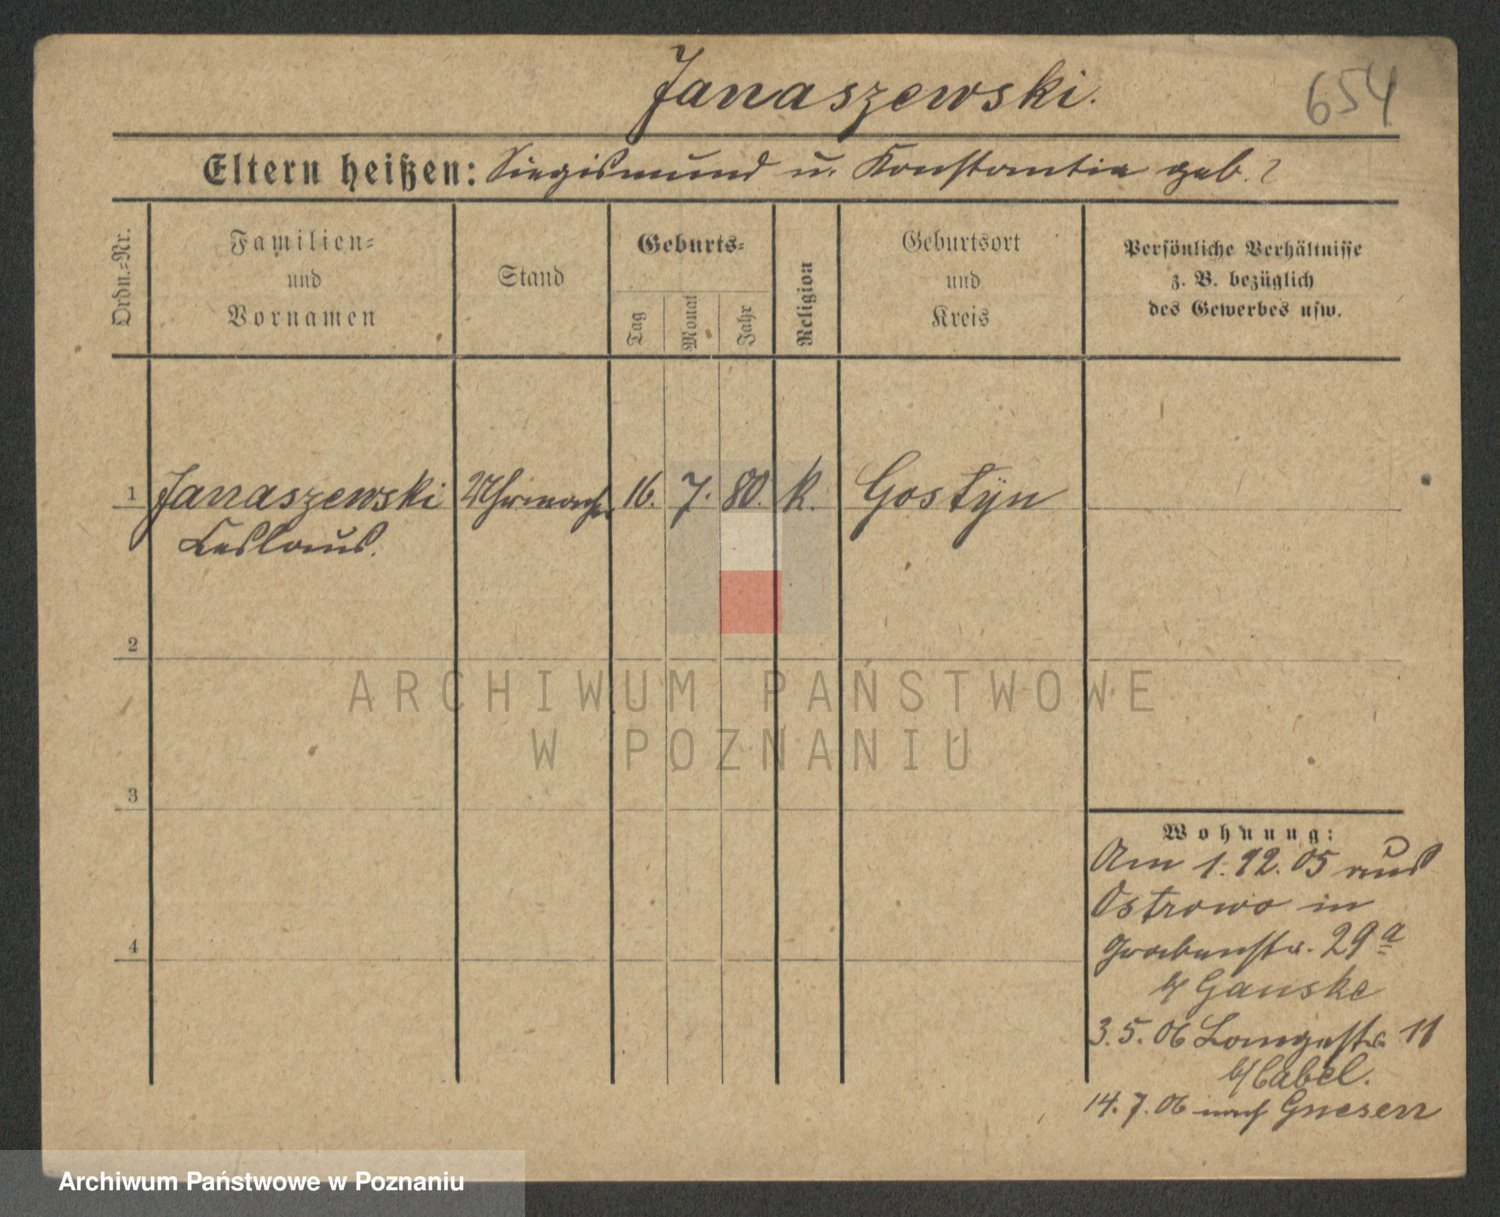 Janaszewski.
654
Eltern heißen: Siegismund u. Konstantia geb. ?
Ordn.-Nr.
Familien-
und
Vornamen
Stand
Geburts-
Tag
Monat
Jahr
Religion
Geburtsort
und
Kreis
Persönliche Verhältnisse
z. B. bezüglich
des Gewerbes usw.
1 Janaszewski Uhrmacher 16. 7. 80. k. Gostyn
Ceslaus.
2
ARCHIWUM PAŃSTWOWE
W POZNANIU
3
Wohnung:
Am 1.12.05 aus
Ostrowo in
Grabenstr. 29a
b/ Ganske
4
3.5.06 Langestr. 11
b/ Cabel.
14.7.06 nach Gnesen
Archiwum Państwowe w Poznaniu